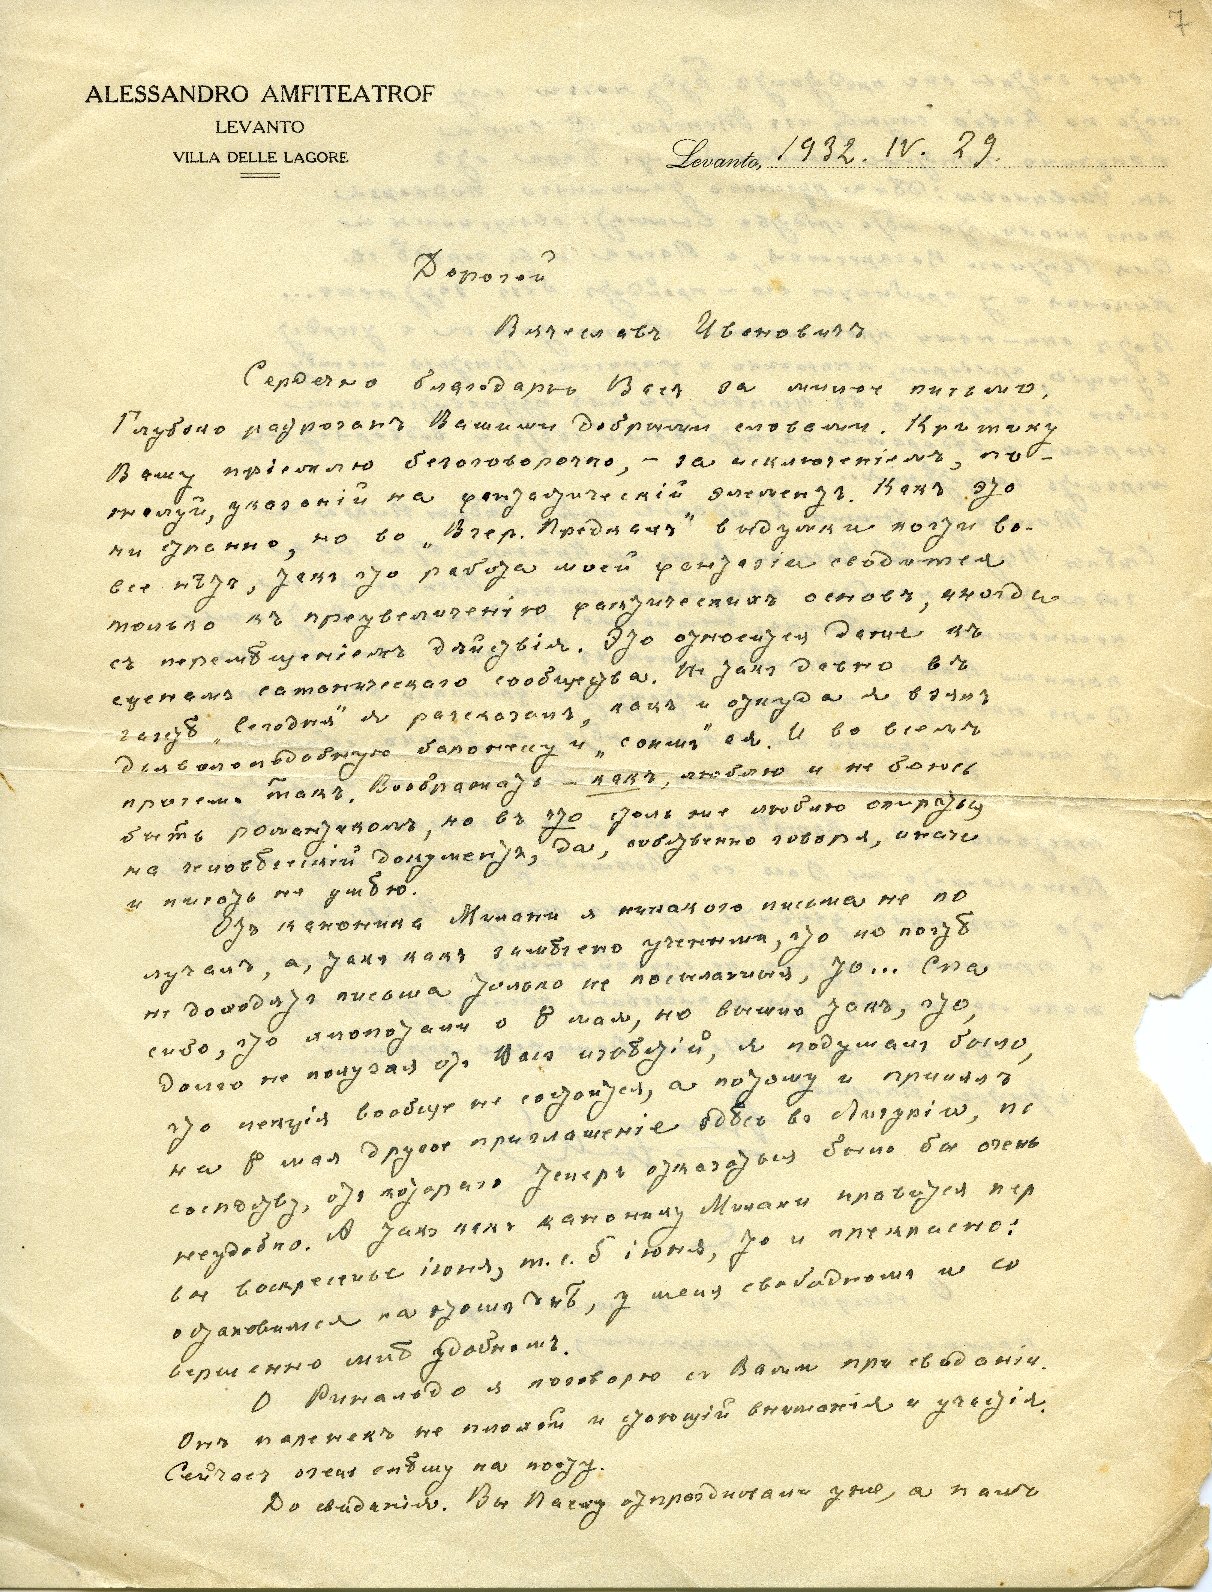 7
ALESSANDRO AMFITEATROF
LEVANTO
VILLA DELLE LAGORE
Levanto, 1932. IV. 29.
Дорогой
Вячеславъ Ивановичъ
Сердечно благодарю Васъ за милое письмо.
Глубоко растроганъ Вашими добрыми словами. Критику
Вашу пріемлю безоговорочно, – за исключеніемъ, по-
жалуй, указаній на фантастическій элементъ. Какъ это
ни странно, но въ „Вчер. Предкахъ" выдумки почти во-
все нѣтъ, такъ что работа моей фантазіи сводится
только къ преувеличенію фактическихъ основъ, иногда
съ перемѣщеніемъ дѣйствія. Это относится даже къ
сценамъ сатаническаго сообщества. Не такъ давно въ
газетѣ „Сегодня" я разсказалъ, какъ и откуда я взялъ
дьяволоподобную баронессу и „сонмъ" ея. И во всемъ
прочемъ такъ. Воображать – какъ, люблю и не боюсь
быть романтикомъ, но въ что столь же люблю опираться
на человѣческій документъ, да, собственно говоря, иначе
и писать не умѣю.
Отъ каноника Милани я никакого письма не по
лучалъ, а, такъ какъ замѣчено учеными, что по почтѣ
не доходятъ письма только не посланныя, то... Спа
сибо, что хлопотали о 8 мая, но вышло такъ, что,
долго не получая отъ Васъ извѣстій, я подумалъ было,
что лекція вообще не состоится, а потому и принялъ
на 8 мая другое приглашеніе здѣсь въ Лигуріи, по
сосѣдству, отъ котораго теперь отказаться было бы очень
неудобно. А такъ какъ канонику Милани нравится пер
вое воскресенье іюня, т. е. 5 іюня, то и прекрасно:
остановимся на этомъ днѣ, у меня свободномъ и со
вершенно мнѣ удобномъ.
О Ринальдо я поговорю съ Вами при свиданіи.
Онъ паренекъ не плохой и стоющій вниманія и участія.
Сейчасъ очень спѣшу на почту.
До свиданія. Вы Пасху отпраздновали уже, а намъ